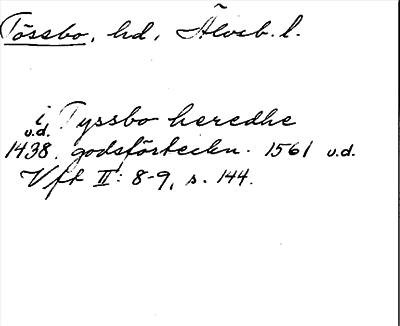 Tössbo, hd, Älvsb. l.
i Tyssbo heredhe
u.d.
1438. godsförteckn. 1561 u.d.
Vft II: 8-9, s. 144.